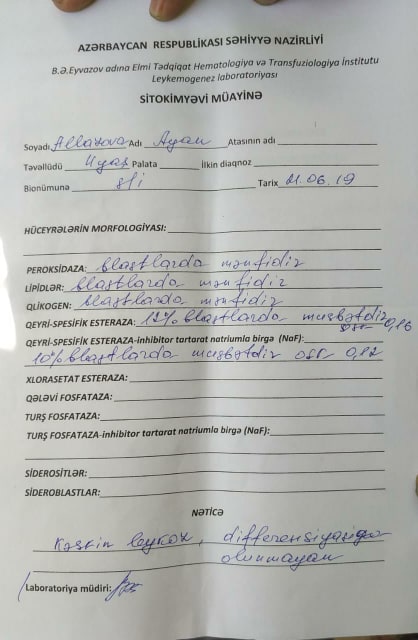 AZƏRBAYCAN RESPUBLİKASI SƏHİYYƏ NAZİRLİYİ
B.Ə.Eyvazov adına Elmi Tədqiqat Hematologiya və Transfuziologiya İnstitutu
Leykemogenez laboratoriyası
SİTOKİMYƏVİ MÜAYİNƏ
Soyadı Allazova Adı Ayan Atasının adı
Təvəllüdü 4 yaş Palata İlkin diaqnoz
Bionümunə s/i Tarix 21.06.19
HÜCEYRƏLƏRİN MORFOLOGİYASI:
PEROKSİDAZA: blastlarda mənfidir
LİPİDLƏR: blastlarda mənfidir
QLİKOGEN: blastlarda mənfidir
QEYRİ-SPESİFİK ESTERAZA: 12% blastlarda müsbətdir
OSK 0,16
QEYRİ-SPESİFİK ESTERAZA-inhibitor tartarat natriumla birgə (NaF):
10% blastlarda müsbətdir OSK 0,12
XLORASETAT ESTERAZA:
QƏLƏVİ FOSFATAZA:
TURŞ FOSFATAZA:
TURŞ FOSFATAZA-inhibitor tartarat natriumla birgə (NaF):
SİDEROSİTLƏR:
SİDEROBLASTLAR:
NƏTİCƏ
Kəskin leykoz, differensiyasiya
olunmayan
Laboratoriya müdiri: